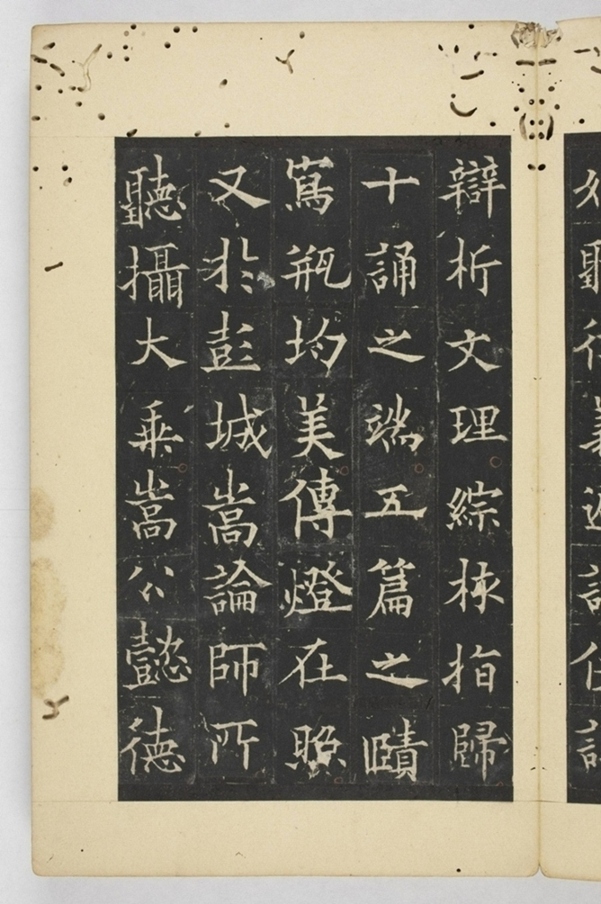 辯析文理綜核指歸
十誦之端五篇之賾
寫瓶均美傳燈在照
又於彭城嵩論師所
聽攝大乘嵩公懿德